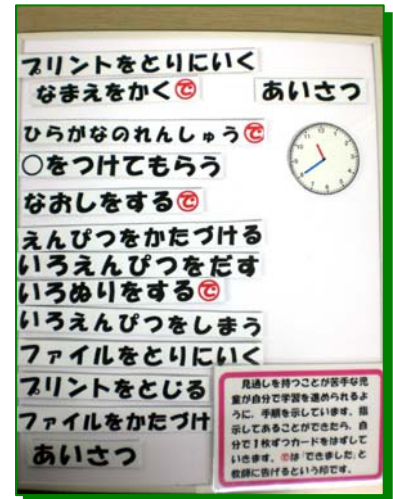 プリントをとりにいく
なまえをかくⓓで
あいさつ
ひらがなのれんしゅうで
○をつけてもらう
なおしをするで
えんぴつをかたづける
いろえんぴつをだす
いろぬりをするで
いろえんぴつをしまう
ファイルをとりにいく
プリントをとじる
ファイルをかたづけ
あいさつ
見通しを持つことが苦手な児
童が自分で学習を進められるよ
うに、手順を示しています。指
示してあることができたら、自
分で1枚ずつカードをはずして
いきます。では「できました」と
教師に告げるという印です。